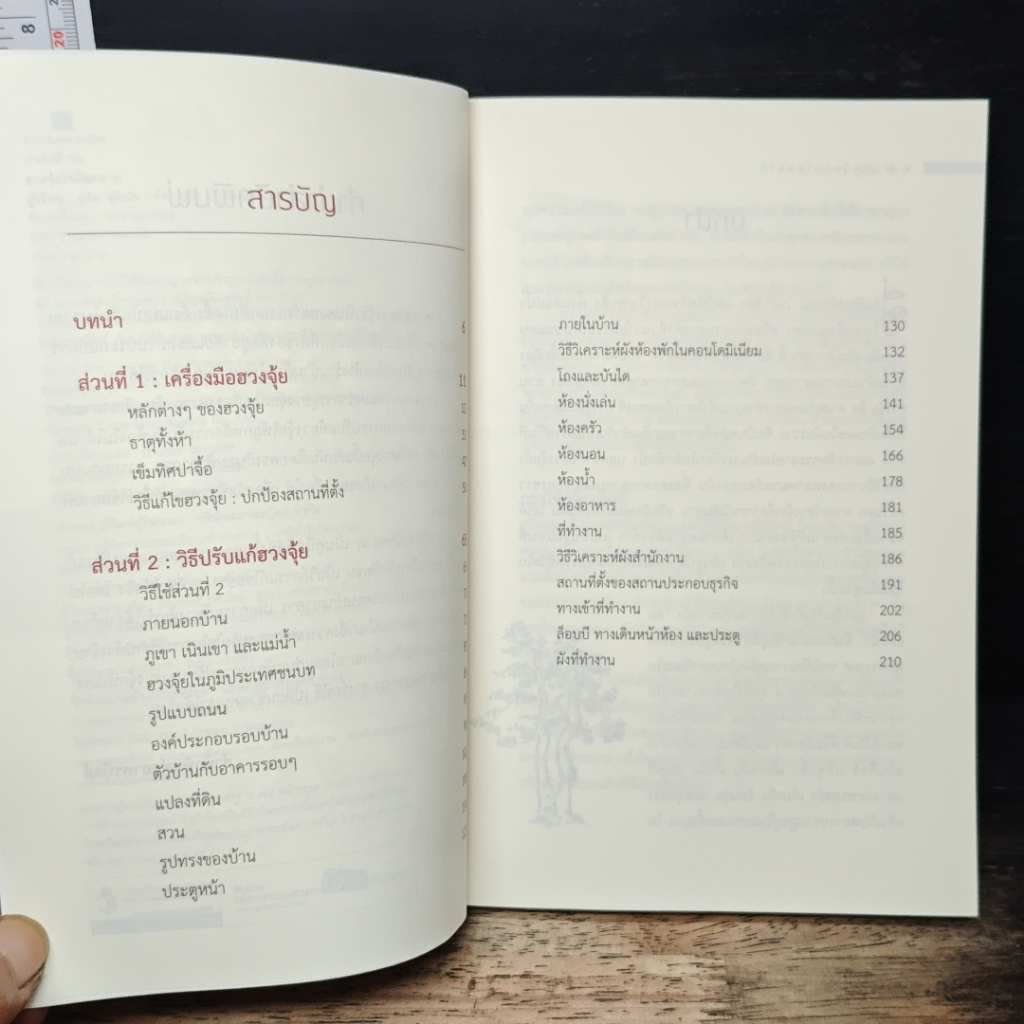 8
20
สารบัญ
บทนำ 6
ส่วนที่ 1 : เครื่องมือฮวงจุ้ย 11
หลักต่างๆ ของฮวงจุ้ย
ธาตุทั้งห้า
เข็มทิศปาจื้อ
วิธีแก้ไขฮวงจุ้ย : ปกป้องสถานที่ตั้ง
ส่วนที่ 2 : วิธีปรับแก้ฮวงจุ้ย
วิธีใช้ส่วนที่ 2
ภายนอกบ้าน
ภูเขา เนินเขา และแม่น้ำ
ฮวงจุ้ยในภูมิประเทศชนบท
รูปแบบถนน
องค์ประกอบรอบบ้าน
ตัวบ้านกับอาคารรอบๆ
แปลงที่ดิน
สวน
รูปทรงของบ้าน
ประตูหน้า
ภายในบ้าน 130
วิธีวิเคราะห์ผังห้องพักในคอนโดมิเนียม 132
โถงและบันได 137
ห้องนั่งเล่น 141
ห้องครัว 154
ห้องนอน 166
ห้องน้ำ 178
ห้องอาหาร 181
ที่ทำงาน 185
วิธีวิเคราะห์ผังสำนักงาน 186
สถานที่ตั้งของสถานประกอบธุรกิจ 191
ทางเข้าที่ทำงาน 202
ล็อบบี ทางเดินหน้าห้อง และประตู 206
ผังที่ทำงาน 210